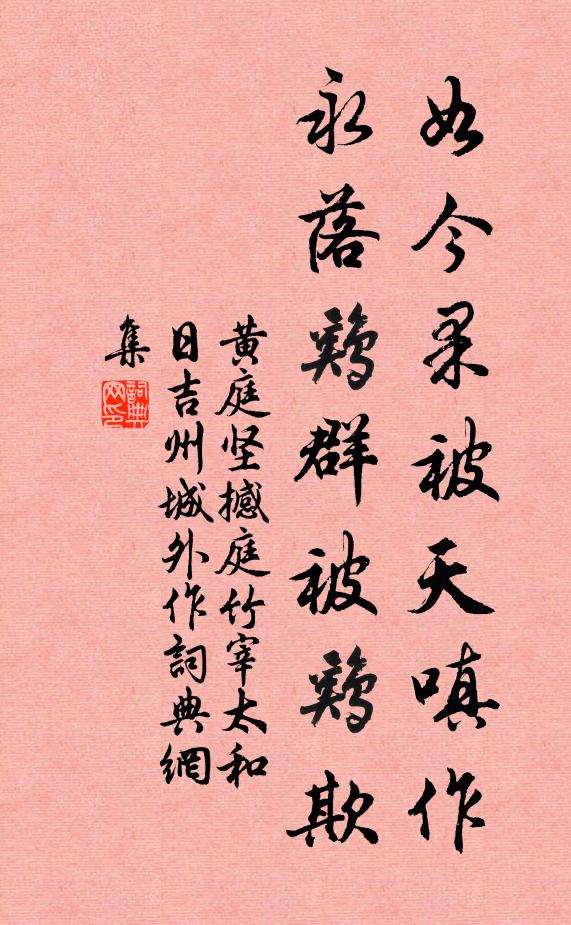 如今果被天嗔作
永落鷄群被鷄欺
黄庭坚撼庭竹宰太和
日吉州城外作詞典網
集
詞典网印